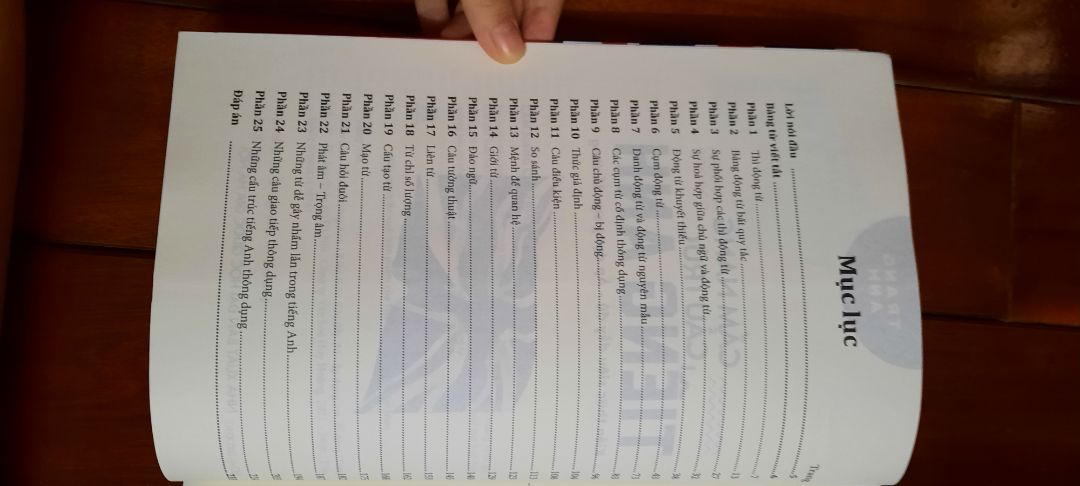 Mục lục
Trang
Lời nói đầu 5
Bảng từ viết tắt 6
Phần 1 Thì động từ 7
Phần 2 Bảng động từ bất quy tắc 13
Phần 3 Sự phối hợp các thì động từ 27
Phần 4 Sự hoà hợp giữa chủ ngữ và động từ 32
Phần 5 Động từ khuyết thiếu
Phần 6 Cụm động từ
Phần 7 Danh động từ và động từ nguyên mẫu 73
Phần 8 Các cụm từ cố định thông dụng
Phần 9 Câu chủ động – bị động
Phần 10 Thức giả định 104
Phần 11 Câu điều kiện 108
Phần 12 So sánh 113
Phần 13 Mệnh đề quan hệ 123
Phần 14 Giới từ 129
Phần 15 Đảo ngữ 140
Phần 16 Câu tường thuật 145
Phần 17 Liên từ
Phần 18 Từ chỉ số lượng 162
Phần 19 Cấu tạo từ 168
Phần 20 Mạo từ 175
Phần 21 Câu hỏi đuôi
Phần 22 Phát âm – Trọng âm 187
Phần 23 Những từ dễ gây nhầm lẫn trong tiếng Anh
Phần 24 Những câu giao tiếp thông dụng
Phần 25 Những cấu trúc tiếng Anh thông dụng
Đáp án